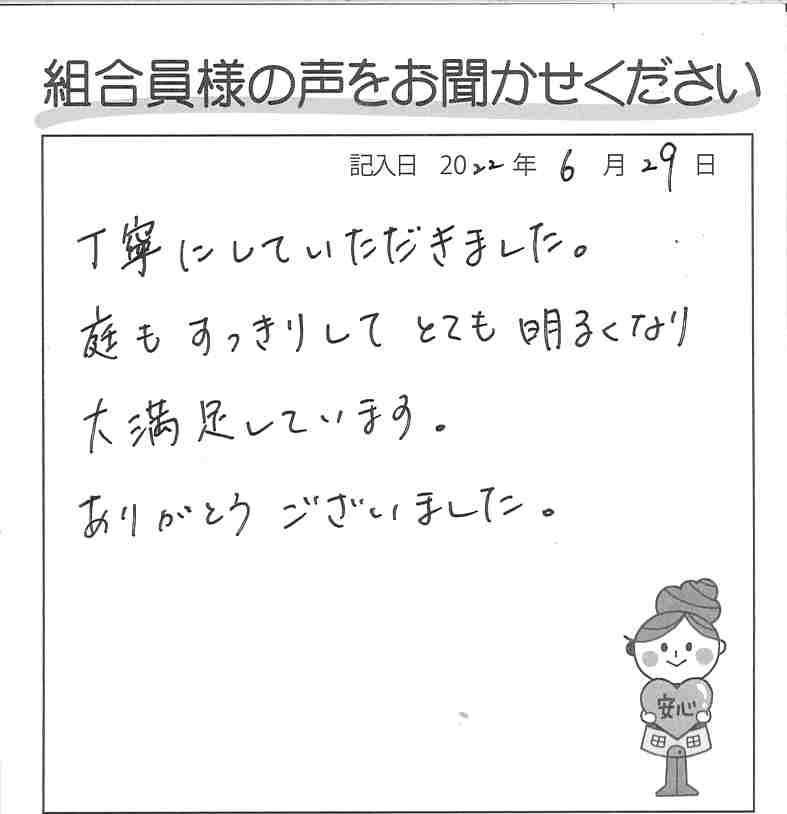 組合員様の声をお聞かせください
記入日 2022年 6月 29日
丁寧にしていただきました。
庭もすっきりして とても明るくなり
大満足しています。
ありがとうございました。
安心